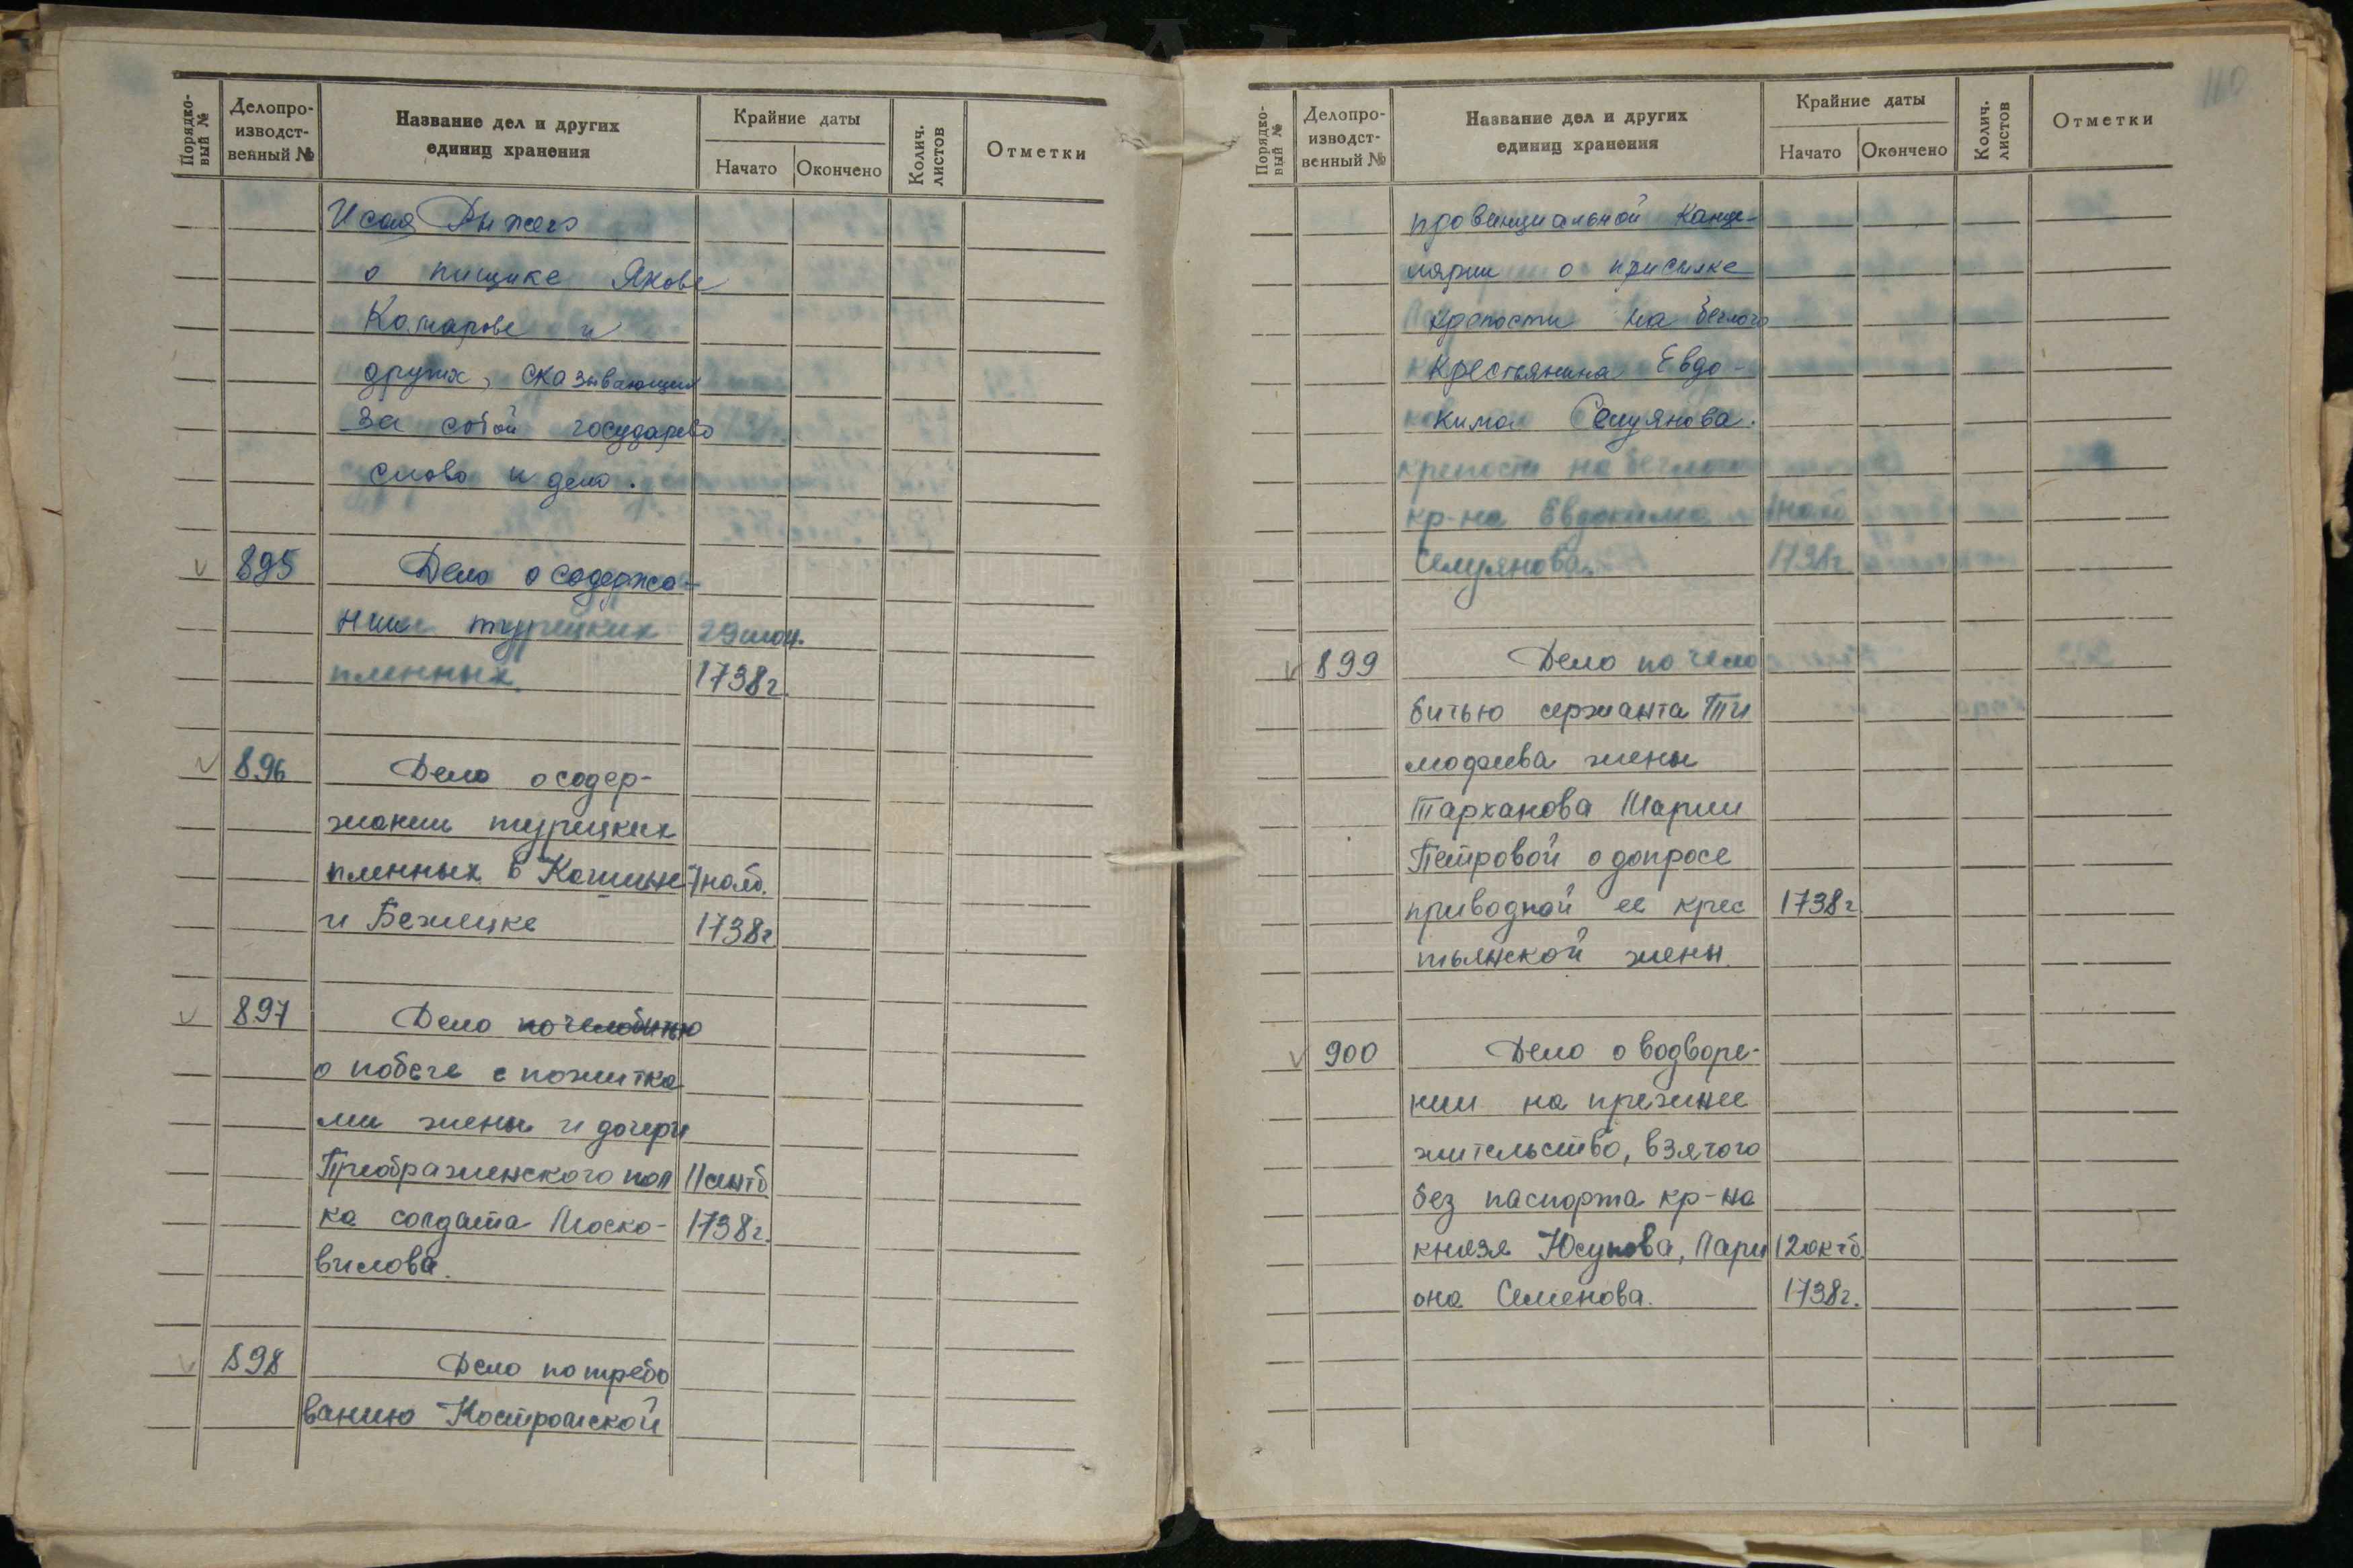 Порядко-
вый №
Делопро-
изводст-
венный №
Название дел и других
единиц хранения
Крайние даты
Начато
Окончено
Колич.
листов
Отметки
Исая Рыжего
о пищике Якове
Комарове и
других, сказывающих
за собой государево
слово и дело.
895 Дело о содержа-
нии турецких 29 июн.
пленных. 1738г.
896 Дело о содер-
жании турецких
пленных в Кашине 7 нояб.
и Бежецке 1738г
897 Дело по челобитью
о побеге с пожитка
ми жены и дочери
Преображенского пол 11 сентб
ка солдата Моско- 1738г.
вилова.
898 Дело по требо
ванию Костромской
110
Порядко-
вый №
Делопро-
изводст-
венный №
Название дел и других
единиц хранения
Крайние даты
Начато
Окончено
Колич.
листов
Отметки
провинциальной канце-
лярии о присылке
крепости на беглого
крестьянина Евдо-
кима Семуянова.
крепости на беглого
кр-на Евдокима нояб
Семуянова. 1738г.
899 Дело по чело
битью сержанта Ти
мофеева жены
Тарханова Марии
Петровой о допросе
приводной ее крес 1738г
тьянской жены.
900 Дело о водворе-
нии на прежнее
жительство, взятого
без паспорта кр-на
князя Юсупова, Лари 12 октб.
она Семенова. 1738г.